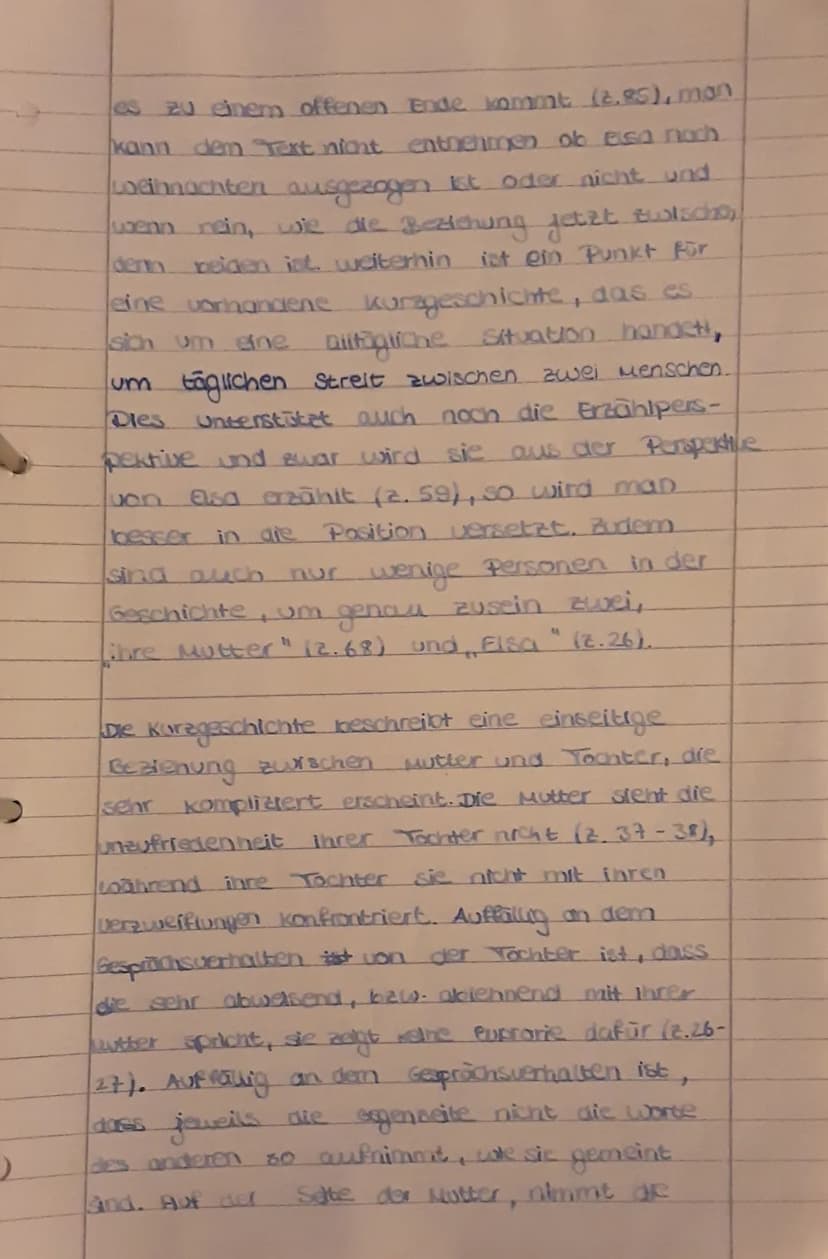 es zu einem offenen Ende kommt (z.85), man
kann dem Text nicht entnehmen ob Elsa nach
Weihnachten ausgezogen ist oder nicht und
wenn nein, wie die Beziehung jetzt zwischen
denn beiden ist. weiterhin ist ein Punkt für
eine vorhandene Kurzgeschichte, das es
sich um eine alltägliche Situation handelt,
um täglichen Streit zwischen zwei Menschen.
Dies unterstützt auch noch die Erzählpers-
pektive und zwar wird sie aus der Perspektive
von Elsa erzählt (z.59), so wird man
besser in die Position versetzt. Zudem
sind auch nur wenige Personen in der
Geschichte, um genau zusein zwei,
„ihre Mutter" (z.68) und „Elsa" (z.26).
Die Kurzgeschichte beschreibt eine einseitige
Beziehung zwischen Mutter und Tochter, die
sehr kompliziert erscheint. Die Mutter sieht die
unzufriedenheit ihrer Tochter nicht (z. 37-38),
während ihre Tochter sie nicht mit ihren
verzweiflungen konfrontriert. Auffällig an dem
Gesprächsverhalten von der Tochter ist, dass
die sehr abweisend, bzw. ablehnend mit ihrer
Mutter spricht, sie zeigt keine Euprorie dafür (z.26-
27). Auffällig an dem Gesprächsverhalten ist,
dass jeweils die gegenseite nicht die Worte
des anderen so aufnimmt, wie sie gemeint
sind. Auf der Seite der Mutter, nimmt die